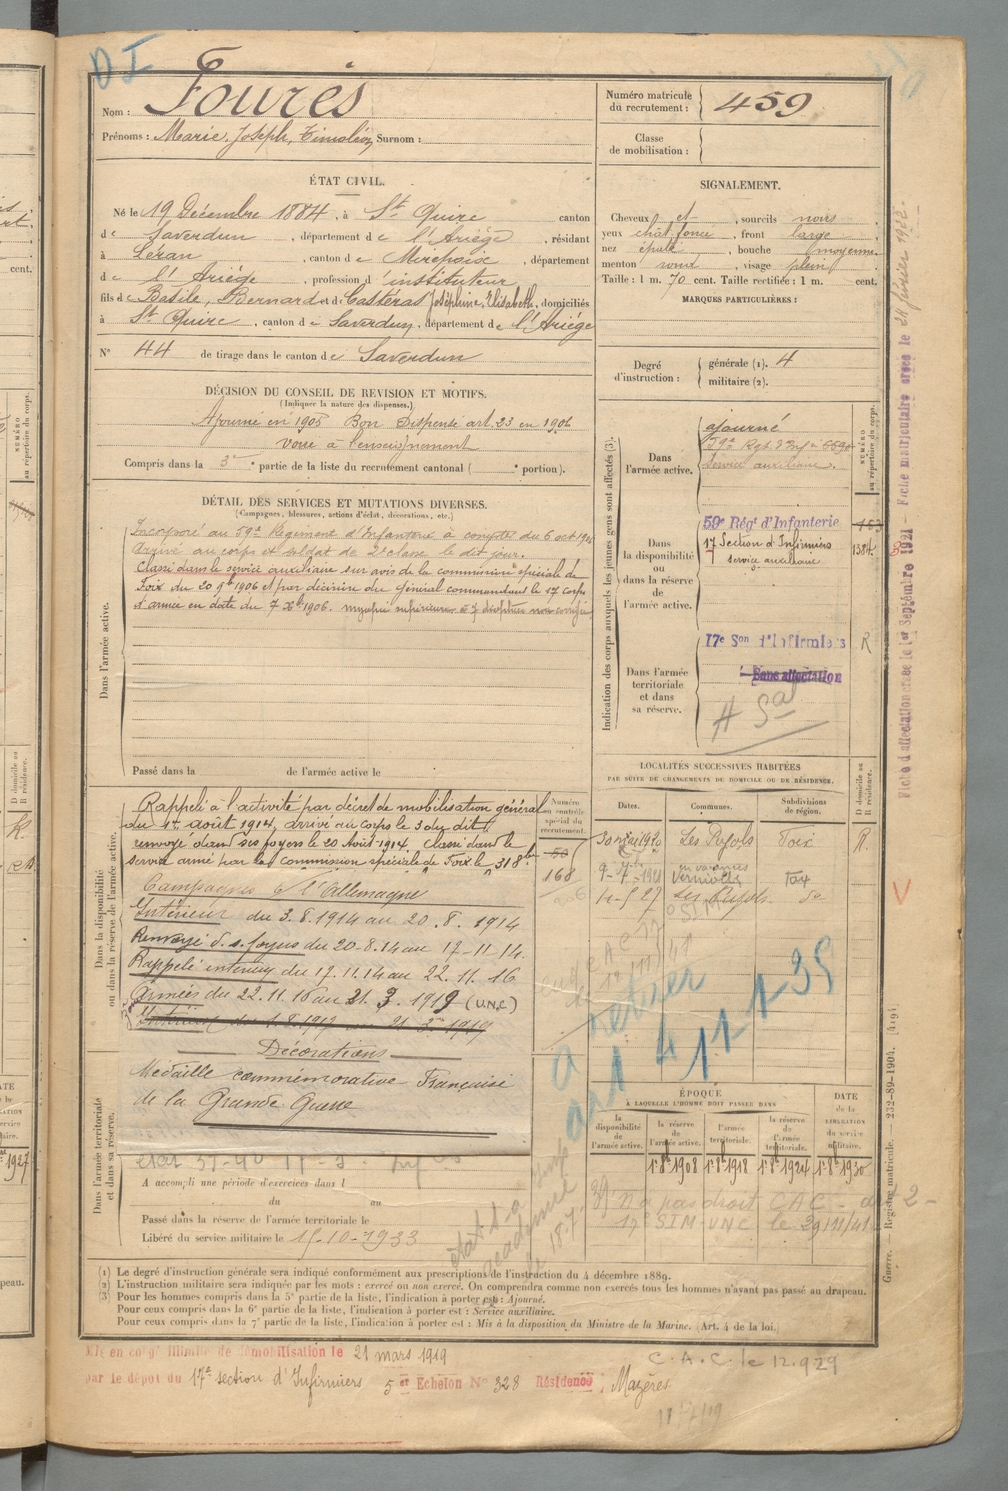 D I
Nom : Fourès
Prénoms : Marie, Joseph, Timoléon Surnom :
ÉTAT CIVIL.
Né le 19 Décembre 1884, à St Quirc canton
de Saverdun, département de l'Ariège, résidant
à Léran, canton de Mirepoix, département
de l'Ariège, profession d'instituteur
fils de Basile, Bernard et de Castéras Joséphine, Elisabeth, domiciliés
à St Quirc, canton de Saverdun, département de l'Ariège
N° 44 de tirage dans le canton de Saverdun
DÉCISION DU CONSEIL DE REVISION ET MOTIFS.
(Indiquer la nature des dispenses.)
Ajourné en 1905 Bon Dispensé art. 23 en 1906
voué à l'enseignement
Compris dans la 3e partie de la liste du recrutement cantonal ( e portion).
DÉTAIL DES SERVICES ET MUTATIONS DIVERSES.
(Campagnes, blessures, actions d'éclat, décorations, etc.)
Dans l'armée active.
Incorporé au 59e Régiment d'Infanterie à compter du 6 oct 1906
Arrivé au corps et soldat de 2e classe le dit jour.
Classé dans le service auxiliaire sur avis de la commission spéciale de
Foix du 20 9bre 1906 et par décision du Général commandant le 17 corps
d'armée en date du 7 Xbre 1906. myopie supérieure à 7 dioptries non corrigée
Passé dans la de l'armée active le
Dans la disponibilité ou dans la réserve de l'armée active.
Rappelé à l'activité par décret de mobilisation général
du 1er août 1914, arrivé au corps le 3 du dit,
renvoyé dans ses foyers le 20 Août 1914, Classé dans le
service armé par la commission spéciale de Foix le 31 8bre
Campagnes c/ l'Allemagne
Intérieur du 3.8.1914 au 20.8.1914
Renvoyé d. s. foyers du 20.8.14 au 17-11-14.
Rappelé intérieur du 17.11.14 au 22.11.16
Armées du 22.11.16 au 21.3.1919 (U.N.C)
Décorations
Médaille commémorative Française
de la Grande Guerre
Numéro au contrôle spécial du recrutement.
168
Dans l'armée territoriale et dans sa réserve.
A accompli une période d'exercices dans l
du au
Passé dans la réserve de l'armée territoriale le
Libéré du service militaire le 15-10-1933
Numéro matricule du recrutement : 459
Classe de mobilisation :
SIGNALEMENT.
Cheveux et, sourcils noirs
yeux chât. foncé, front large
nez épaté, bouche moyenne
menton rond, visage plein
Taille : 1 m. 70 cent. Taille rectifiée : 1 m. cent.
MARQUES PARTICULIÈRES :
Degré d'instruction : générale (1). 4
militaire (2).
Indication des corps auxquels les jeunes gens sont affectés (3).
NUMÉRO au répertoire du corps.
Dans l'armée active.
ajourné
Service auxiliaire.
Dans la disponibilité ou dans la réserve de l'armée active.
59e Régt d'Infanterie
17 Section d'Infirmiers 1384
service auxiliaire
Dans l'armée territoriale et dans sa réserve.
17e Son d'Infirmiers R
Sans affectation
LOCALITÉS SUCCESSIVES HABITÉES
PAR SUITE DE CHANGEMENTS DE DOMICILE OU DE RÉSIDENCE.
Dates. Communes. Subdivisions de région. D domicile ou R résidence.
Les Pujols Foix R.
9-7-1921 Verniolle Foix
Les Pujols de
à retirer
4 11-1-39
ÉPOQUE
À LAQUELLE L'HOMME DOIT PASSER DANS
la disponibilité de l'armée active. la réserve de l'armée active. l'armée territoriale. la réserve de l'armée territoriale. DATE de la LIBÉRATION du service militaire.
1er 8bre 1908 1er 8bre 1918 1er 8bre 1924 1er 8bre 1930
n'a pas droit CAC
17e SIM UNC le 29/11/41
Fiche d'affectation créée le 1er Septembre 1921 — Fiche matriculaire créée le 24 février 1922.
Guerre. — Registre matricule. — 232-89-1904. [419]
(1) Le degré d'instruction générale sera indiqué conformément aux prescriptions de l'instruction du 4 décembre 1889.
(2) L'instruction militaire sera indiquée par les mots : exercé ou non exercé. On comprendra comme non exercés tous les hommes n'ayant pas passé au drapeau.
(3) Pour les hommes compris dans la 5e partie de la liste, l'indication à porter est : Ajourné.
Pour ceux compris dans la 6e partie de la liste, l'indication à porter est : Service auxiliaire.
Pour ceux compris dans la 7e partie de la liste, l'indication à porter est : Mis à la disposition du Ministre de la Marine. (Art. 4 de la loi.)
Mis en congé illimité de démobilisation le 21 mars 1919
par le dépôt du 17e section d'Infirmiers 5er Échelon N° 328 Résidence : Mazères
C.A.C. le 12.9.29